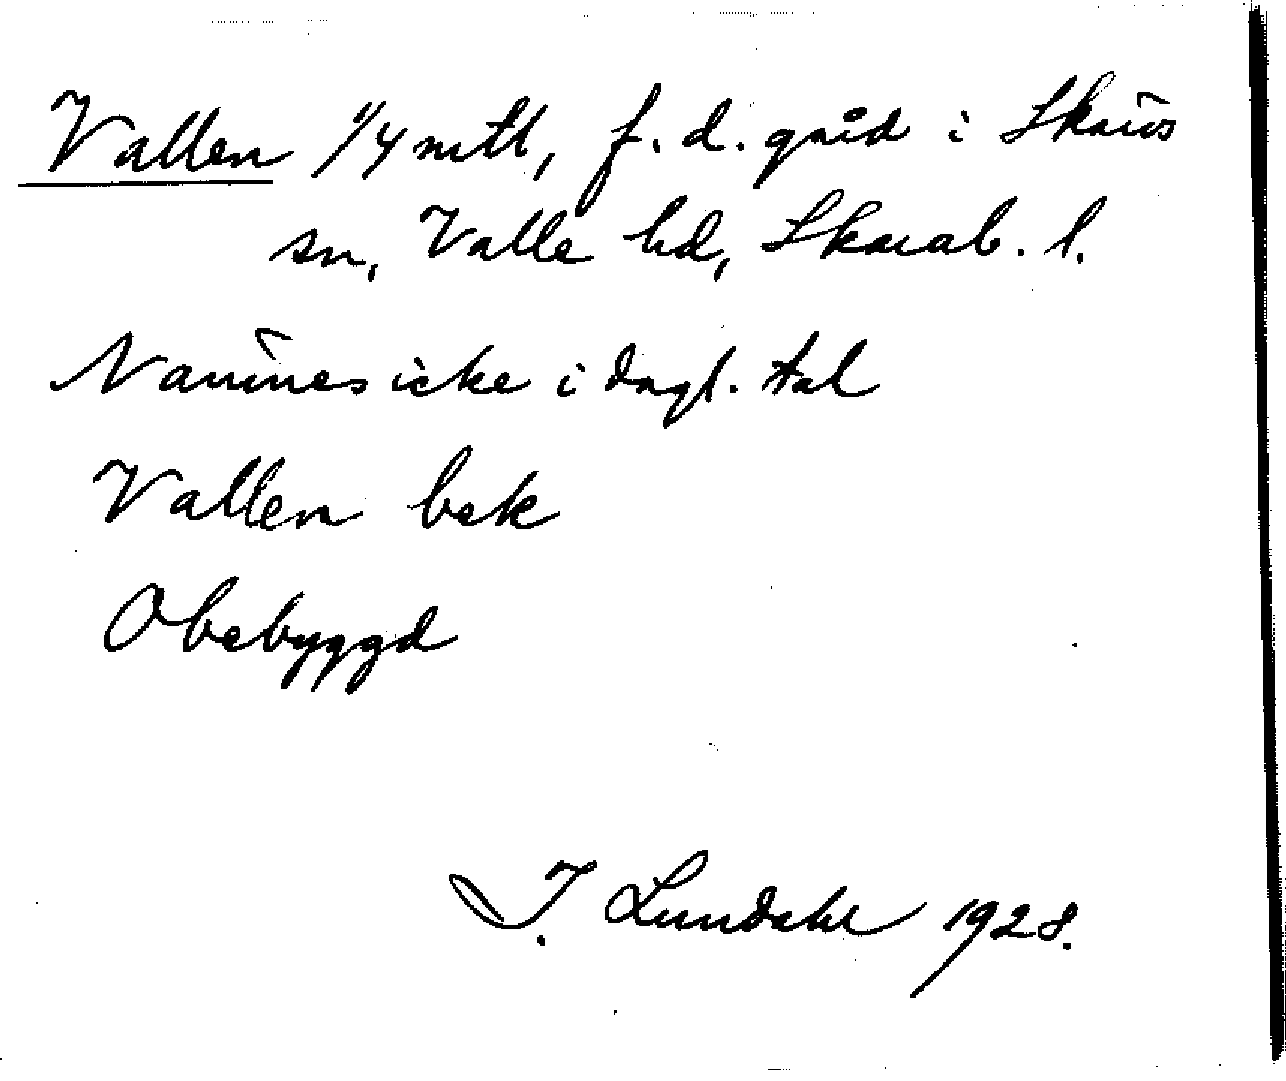 Vallen 1/4 mtl, f. d. gård i Skärvs
sn, Valle hd, Skarab. l.
Nämnes icke i dagl. tal
Vallen bek
Obebyggd
I. Lundahl 1928.